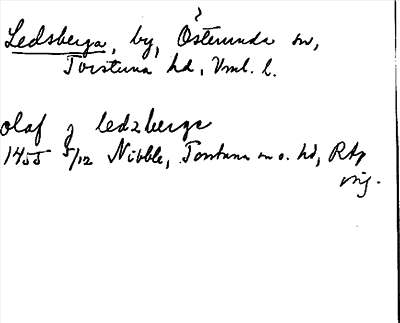 ?
Ledsberga, by, Österunda sn,
Torstuna hd, Vml. l.
olaf j ledzberge
1455 5/12 Nibble, Torstuna sn o. hd, RAp
orig.